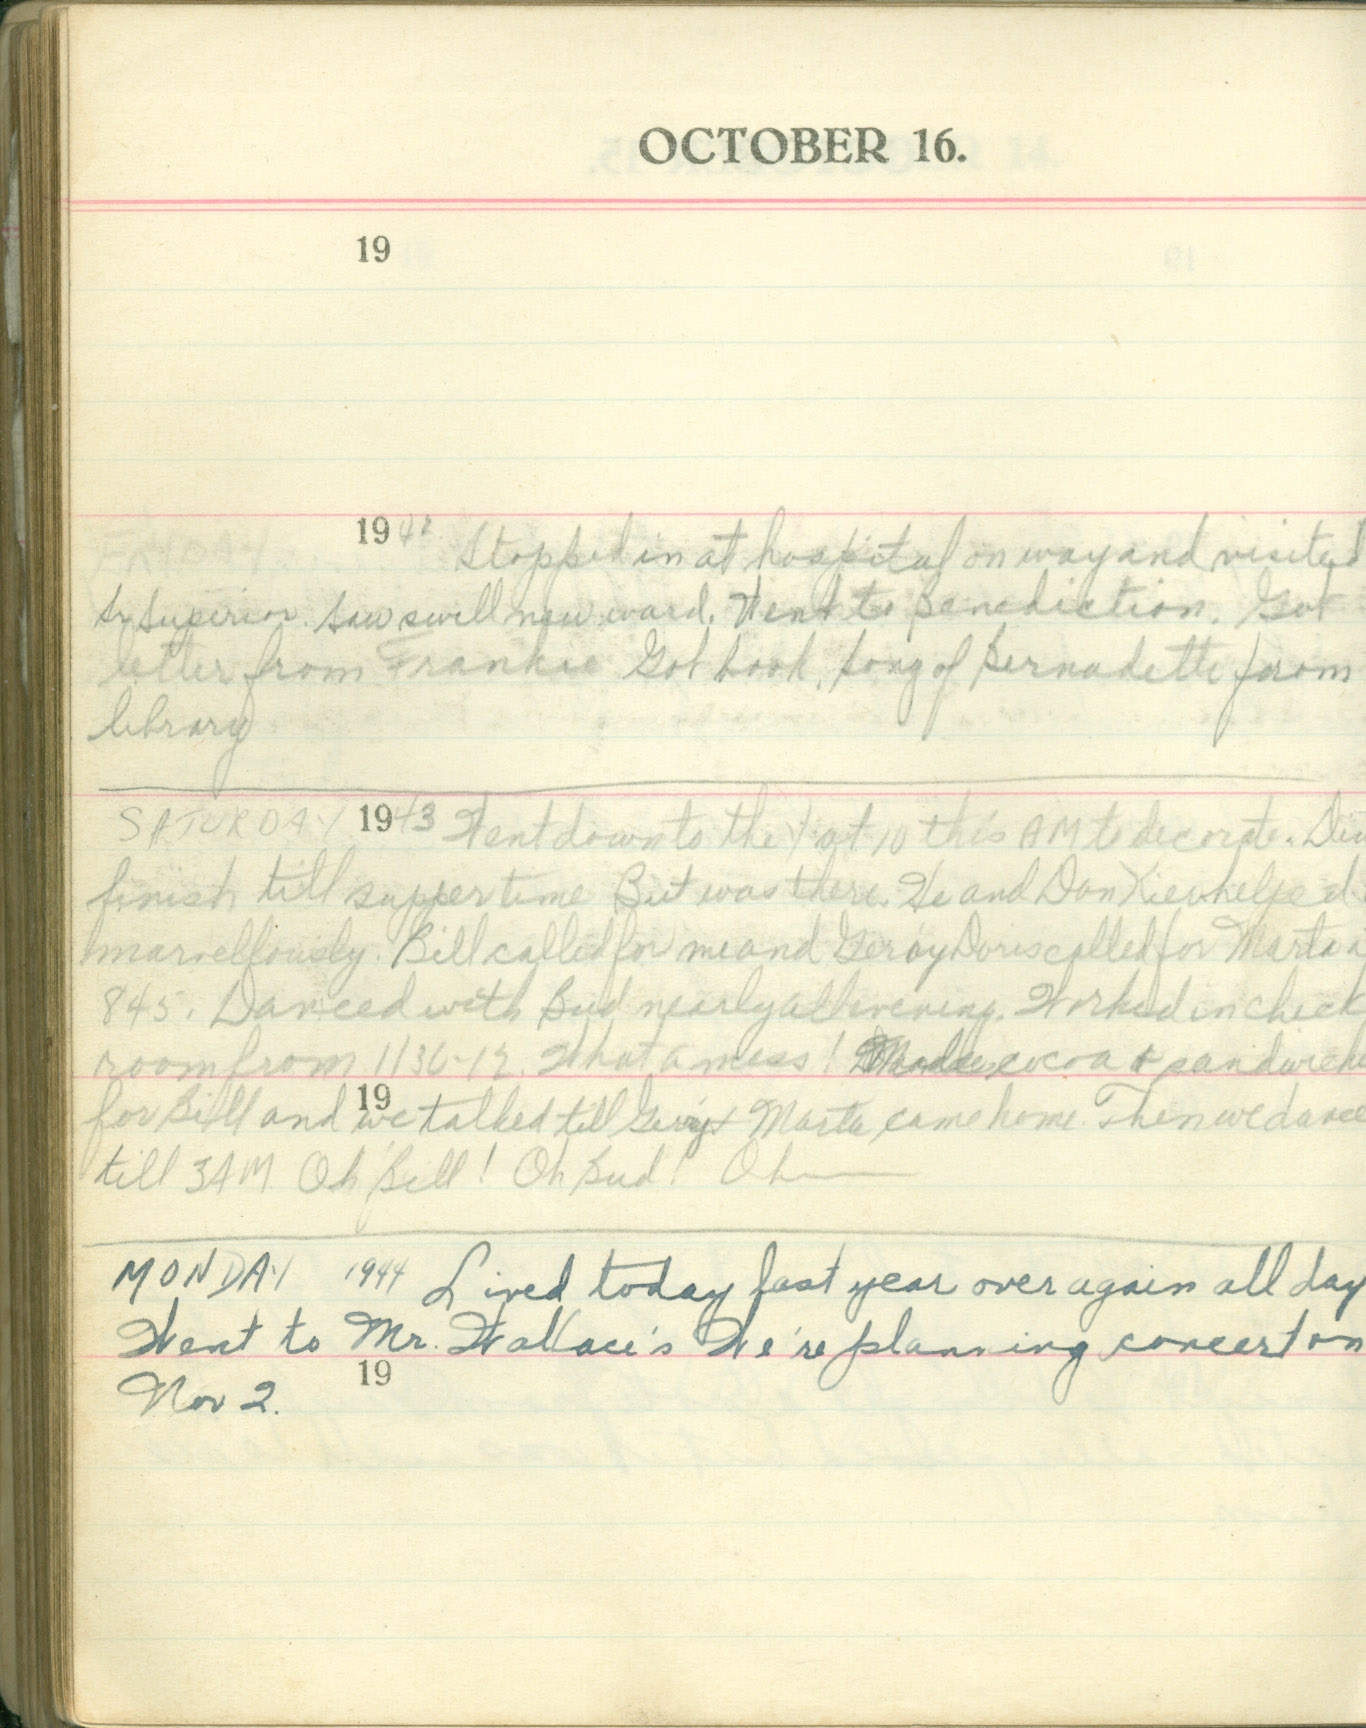 OCTOBER 16.
19
FRIDAY 1942 Stopped in at hospital on way and visited
Sr Superior. Saw swell new ward. Went to Benediction. Got
letter from Frankie Got book, Song of Bernadette from
library
SATURDAY 1943 Went down to the Y at 10 this AM to decorate. Did
finish till suppertime But was there. He and Don helped
marvellously. Bill called for me and Gerry Doris called for Marta a
845. Danced with Bud nearly all evening. Worked in check
room from 1130-12. What a mess! Made cocoa & sandwiche
19
for Bill and we talked till Gerry & Marta came home. Then we dance
till 3AM Oh Bill! Oh Bud! Oh——
MONDAY 1944 Lived today last year over again all day
Went to Mr. Wallace's We're planning concert on
19
Nov 2.